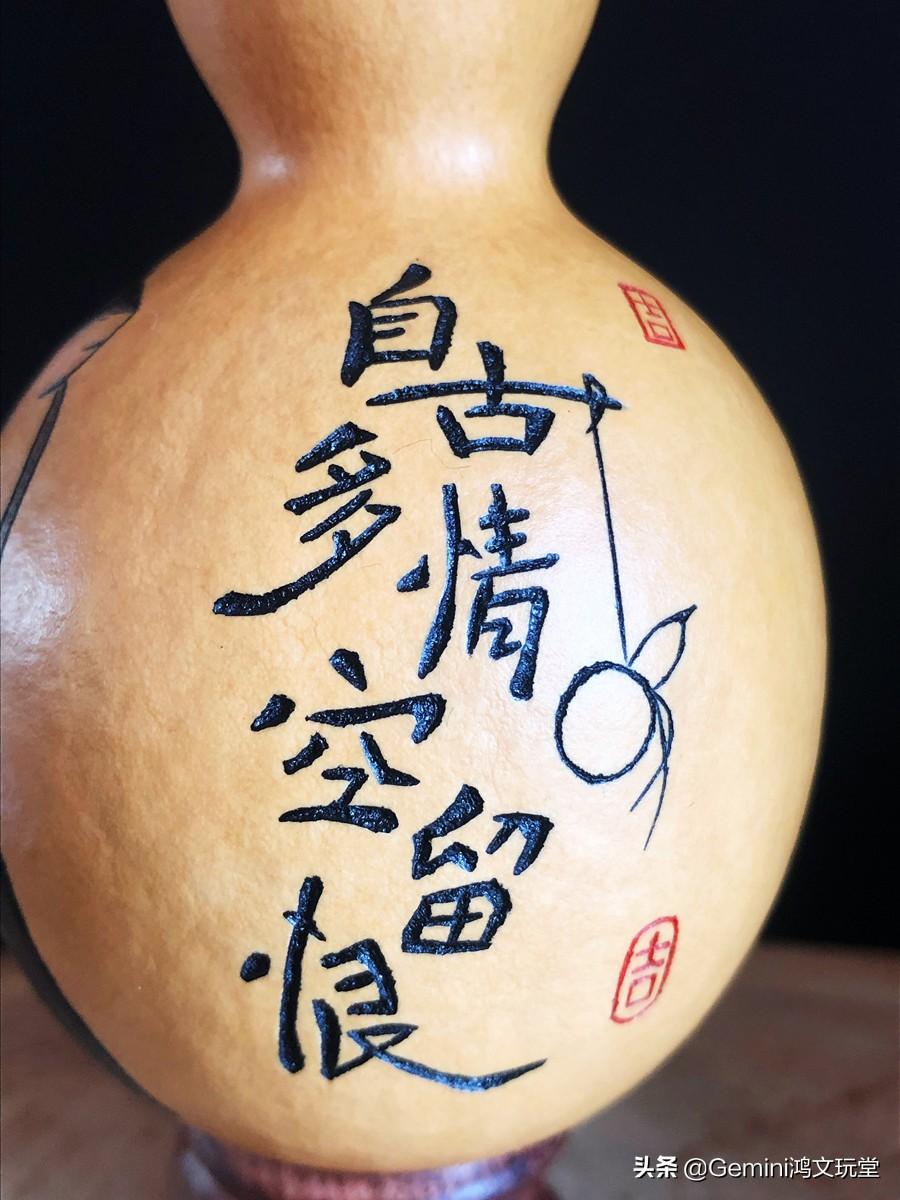 自古多情空留恨
吉
吉
头条 @Gemini鸿文玩堂